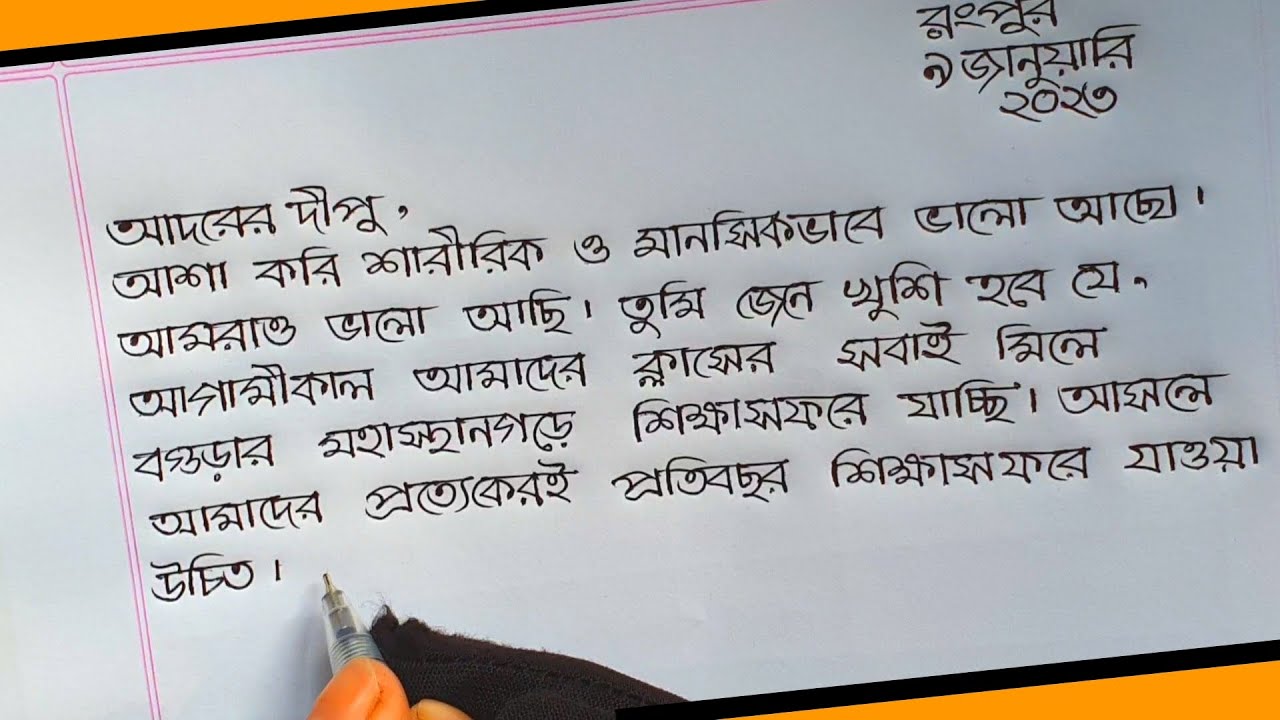 রংপুর
৯ জানুয়ারি
২০২৩
আদরের দীপু,
আশা করি শারীরিক ও মানসিকভাবে ভালো আছো।
আমরাও ভালো আছি। তুমি জেনে খুশি হবে যে,
আগামীকাল আমাদের ক্লাসের সবাই মিলে
বগুড়ার মহাস্থানগড়ে শিক্ষাসফরে যাচ্ছি। আসলে
আমাদের প্রত্যেকেরই প্রতিবছর শিক্ষাসফরে যাওয়া
উচিত।